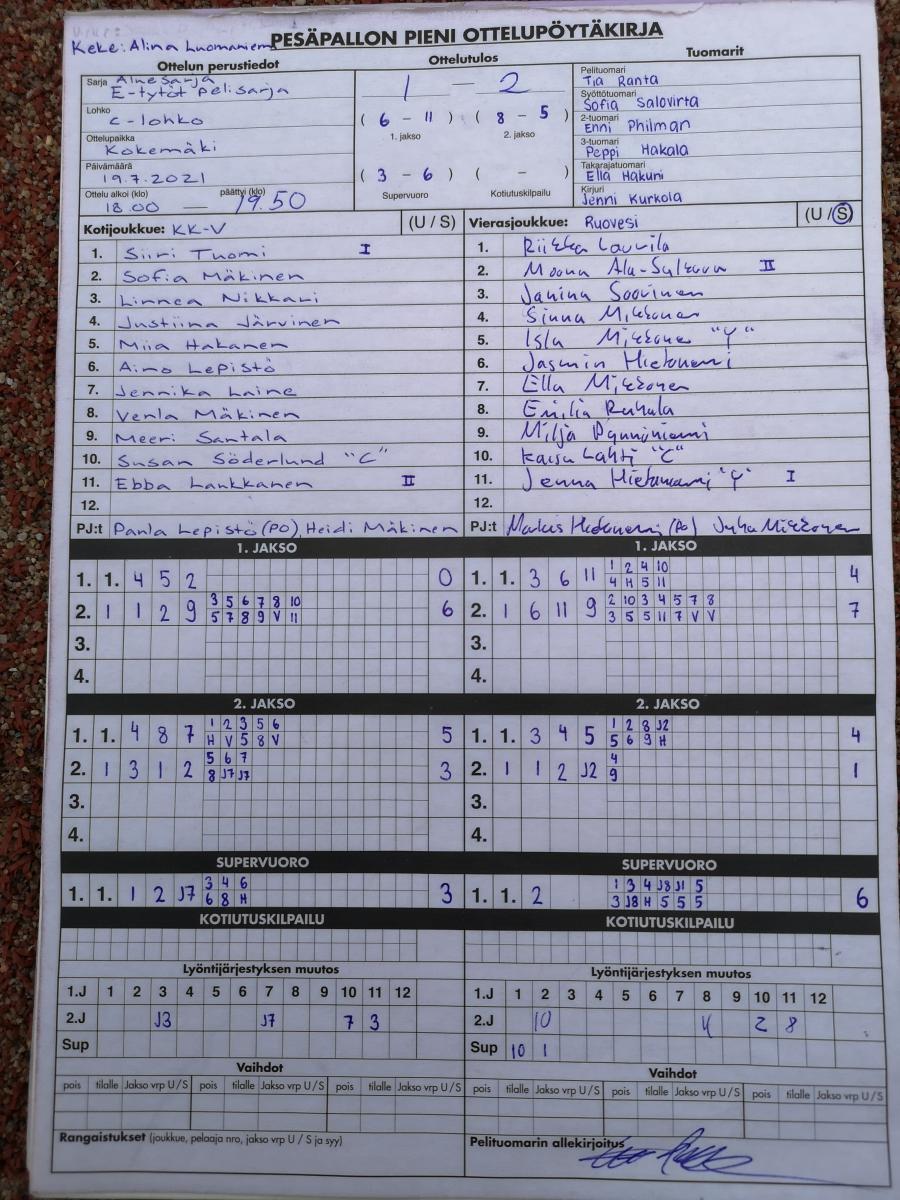 Keke: Alina Luomaniemi
PESÄPALLON PIENI OTTELUPÖYTÄKIRJA
Ottelun perustiedot
Sarja Aluesarja
E-tytöt pelisarja
Lohko
C-lohko
Ottelupaikka
Kokemäki
Päivämäärä
19.7.2021
Ottelu alkoi (klo) päättyi (klo)
18.00 — 19.50
Ottelutulos
1 — 2
( 6 - 11 ) ( 8 - 5 )
1. jakso 2. jakso
( 3 - 6 ) ( - )
Supervuoro Kotiutuskilpailu
Tuomarit
Pelituomari
Tia Ranta
Syöttötuomari
Sofia Salovirta
2-tuomari
Enni Philman
3-tuomari
Peppi Hakala
Takarajatuomari
Ella Hakuni
Kirjuri
Jenni Kurkola
Kotijoukkue: KK-V (U / S)
1. Siiri Tuomi I
2. Sofia Mäkinen
3. Linnea Nikkari
4. Justiina Järvinen
5. Miia Hakanen
6. Aino Lepistö
7. Jennika Laine
8. Venla Mäkinen
9. Meeri Santala
10. Susan Söderlund "C"
11. Ebba Lankkanen II
12.
PJ:t Paula Lepistö (PO), Heidi Mäkinen
Vierasjoukkue: Ruovesi (U / S)
1. Riikka Laurila
2. Moona Ala-
II
3. Janina Soovinen
4. Sinna Mikkonen
5. Isla Mikkonen "Y"
6. Jasmin Hietaniemi
7. Ella Mikkonen
8. Emilia Ruhala
9. Milja Pynnöniemi
10. Kaisa Lahti "C"
11. Jenna Hietaniemi "Y" I
12.
PJ:t Markus Hietaniemi (PO) Juha Mikkonen
1. JAKSO
1. 1. 4 5 2 0
2. 1 1 2 9 3 5 6 7 8 10 6
5 7 8 9 V 11
3.
4.
1. JAKSO
1. 1. 3 6 11 1 2 4 10 4
4 H 5 11
2. 1 6 11 9 2 10 3 4 5 7 8 7
3 5 5 11 7 V V
3.
4.
2. JAKSO
1. 1. 4 8 7 1 2 3 5 6 5
H V 5 8 V
2. 1 3 1 2 5 6 7 3
8 J7 J7
3.
4.
2. JAKSO
1. 1. 3 4 5 1 2 8 J2 4
5 6 9 H
2. 1 1 2 J2 4 1
9
3.
4.
SUPERVUORO
1. 1. 1 2 J7 3 4 6 3
6 8 H
SUPERVUORO
1. 1. 2 1 3 4 J8 J1 5 6
3 J8 H 5 5 5
KOTIUTUSKILPAILU
KOTIUTUSKILPAILU
Lyöntijärjestyksen muutos
1.J 1 2 3 4 5 6 7 8 9 10 11 12
2.J J3 J7 7 3
Sup
Lyöntijärjestyksen muutos
1.J 1 2 3 4 5 6 7 8 9 10 11 12
2.J 10 4 2 8
Sup 10 1
Vaihdot
pois tilalle Jakso vrp U / S pois tilalle Jakso vrp U / S pois tilalle Jakso vrp U / S
Vaihdot
pois tilalle Jakso vrp U / S pois tilalle Jakso vrp U / S pois tilalle Jakso vrp U / S
Rangaistukset (joukkue, pelaaja nro, jakso vrp U / S ja syy)
Pelituomarin allekirjoitus